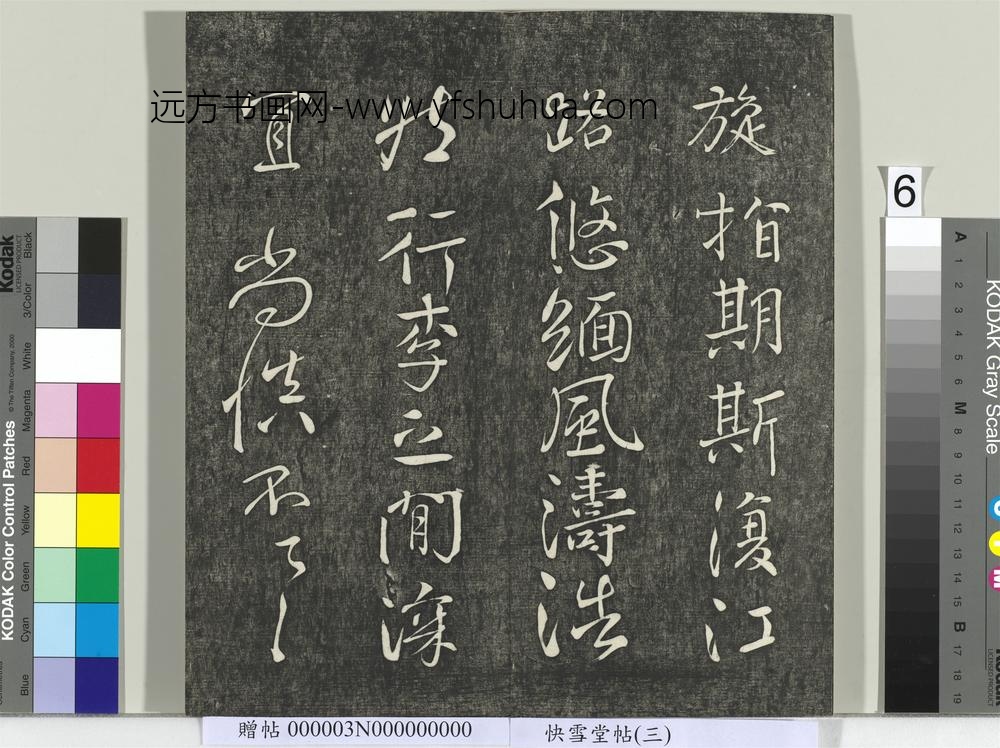 远方书画网-www.yfshuhua.com
旋指期斯復江
路悠緬風濤浩
壯行李之間深
宜尚慎不
贈帖 000003N000000000
快雪堂帖(三)
6
Kodak
LICENSED PRODUCT
KODAK Color Control Patches
© The Tiffen Company, 2000
Black
3/Color
White
Magenta
Red
Yellow
Green
Cyan
Blue
KODAK Gray Scale
A 1 2 3 4 5 6 M 8 9 10 11 12 13 14 15 B 17 18 19